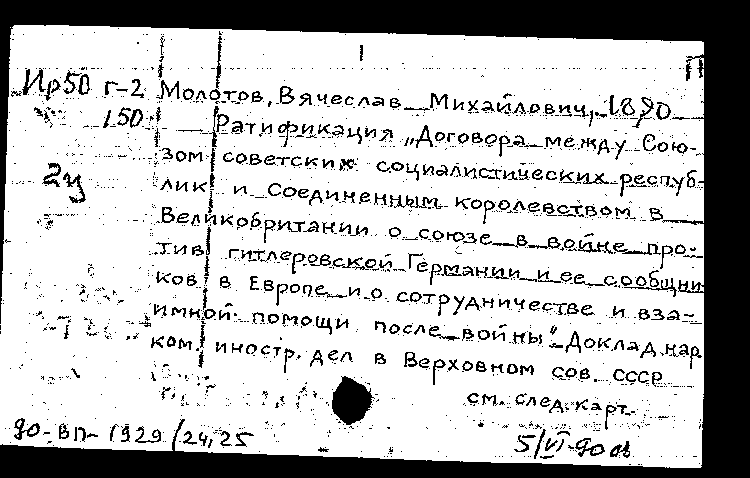 Ир50 г-2 Молотов, Вячеслав Михайлович, 1890
150 Ратификация „Договора между Сою-
зом советских социалистических респуб-
2й
лик и Соединенным королевством в
Великобритании о союзе в войне про-
тив гитлеровской Германии и ее сообщни
ков в Европе и о сотрудничестве и вза-
имной помощи после войны". Доклад нар
ком. иностр. дел в Верховном сов. СССР
см. след. карт.
90-ВП-1929/24,25 5/VI-90